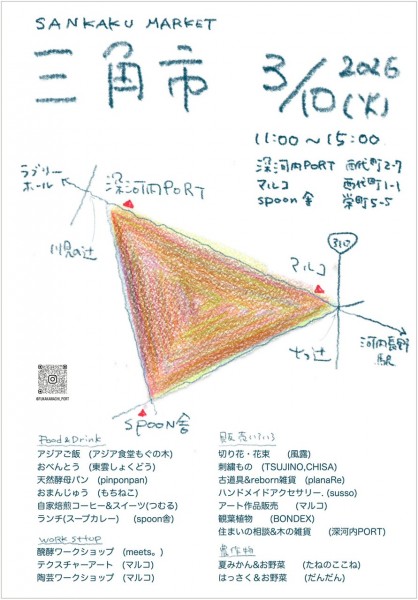 SANKAKU MARKET
三角市
3/10(火) 2026
11:00～15:00
深河内PORT 西代町2-7
マルコ 西代町1-1
spoon舎 栄町5-5
ラブリーホール
深河内PORT
310
川見の辻
マルコ
七つ辻
河内長野駅
spoon舎
Food&Drink
アジアご飯 (アジア食堂もぐの木)
おべんとう (東雲しょくどう)
天然酵母パン (pinponpan)
おまんじゅう (もちねこ)
自家焙煎コーヒー&スイーツ(つむる)
ランチ(スープカレー) (spoon舎)
WORK SHOP
醗酵ワークショップ (meets。)
テクスチャーアート (マルコ)
陶芸ワークショップ (マルコ)
販売いろいろ
切り花・花束 (風露)
刺繍もの (TSUJINO,CHISA)
古道具&reborn雑貨 (planaRe)
ハンドメイドアクセサリー. (susso)
アート作品販売 (マルコ)
観葉植物 (BONDEX)
住まいの相談&木の雑貨 (深河内PORT)
農作物
夏みかん&お野菜 (たねのここね)
はっさく&お野菜 (だんだん)